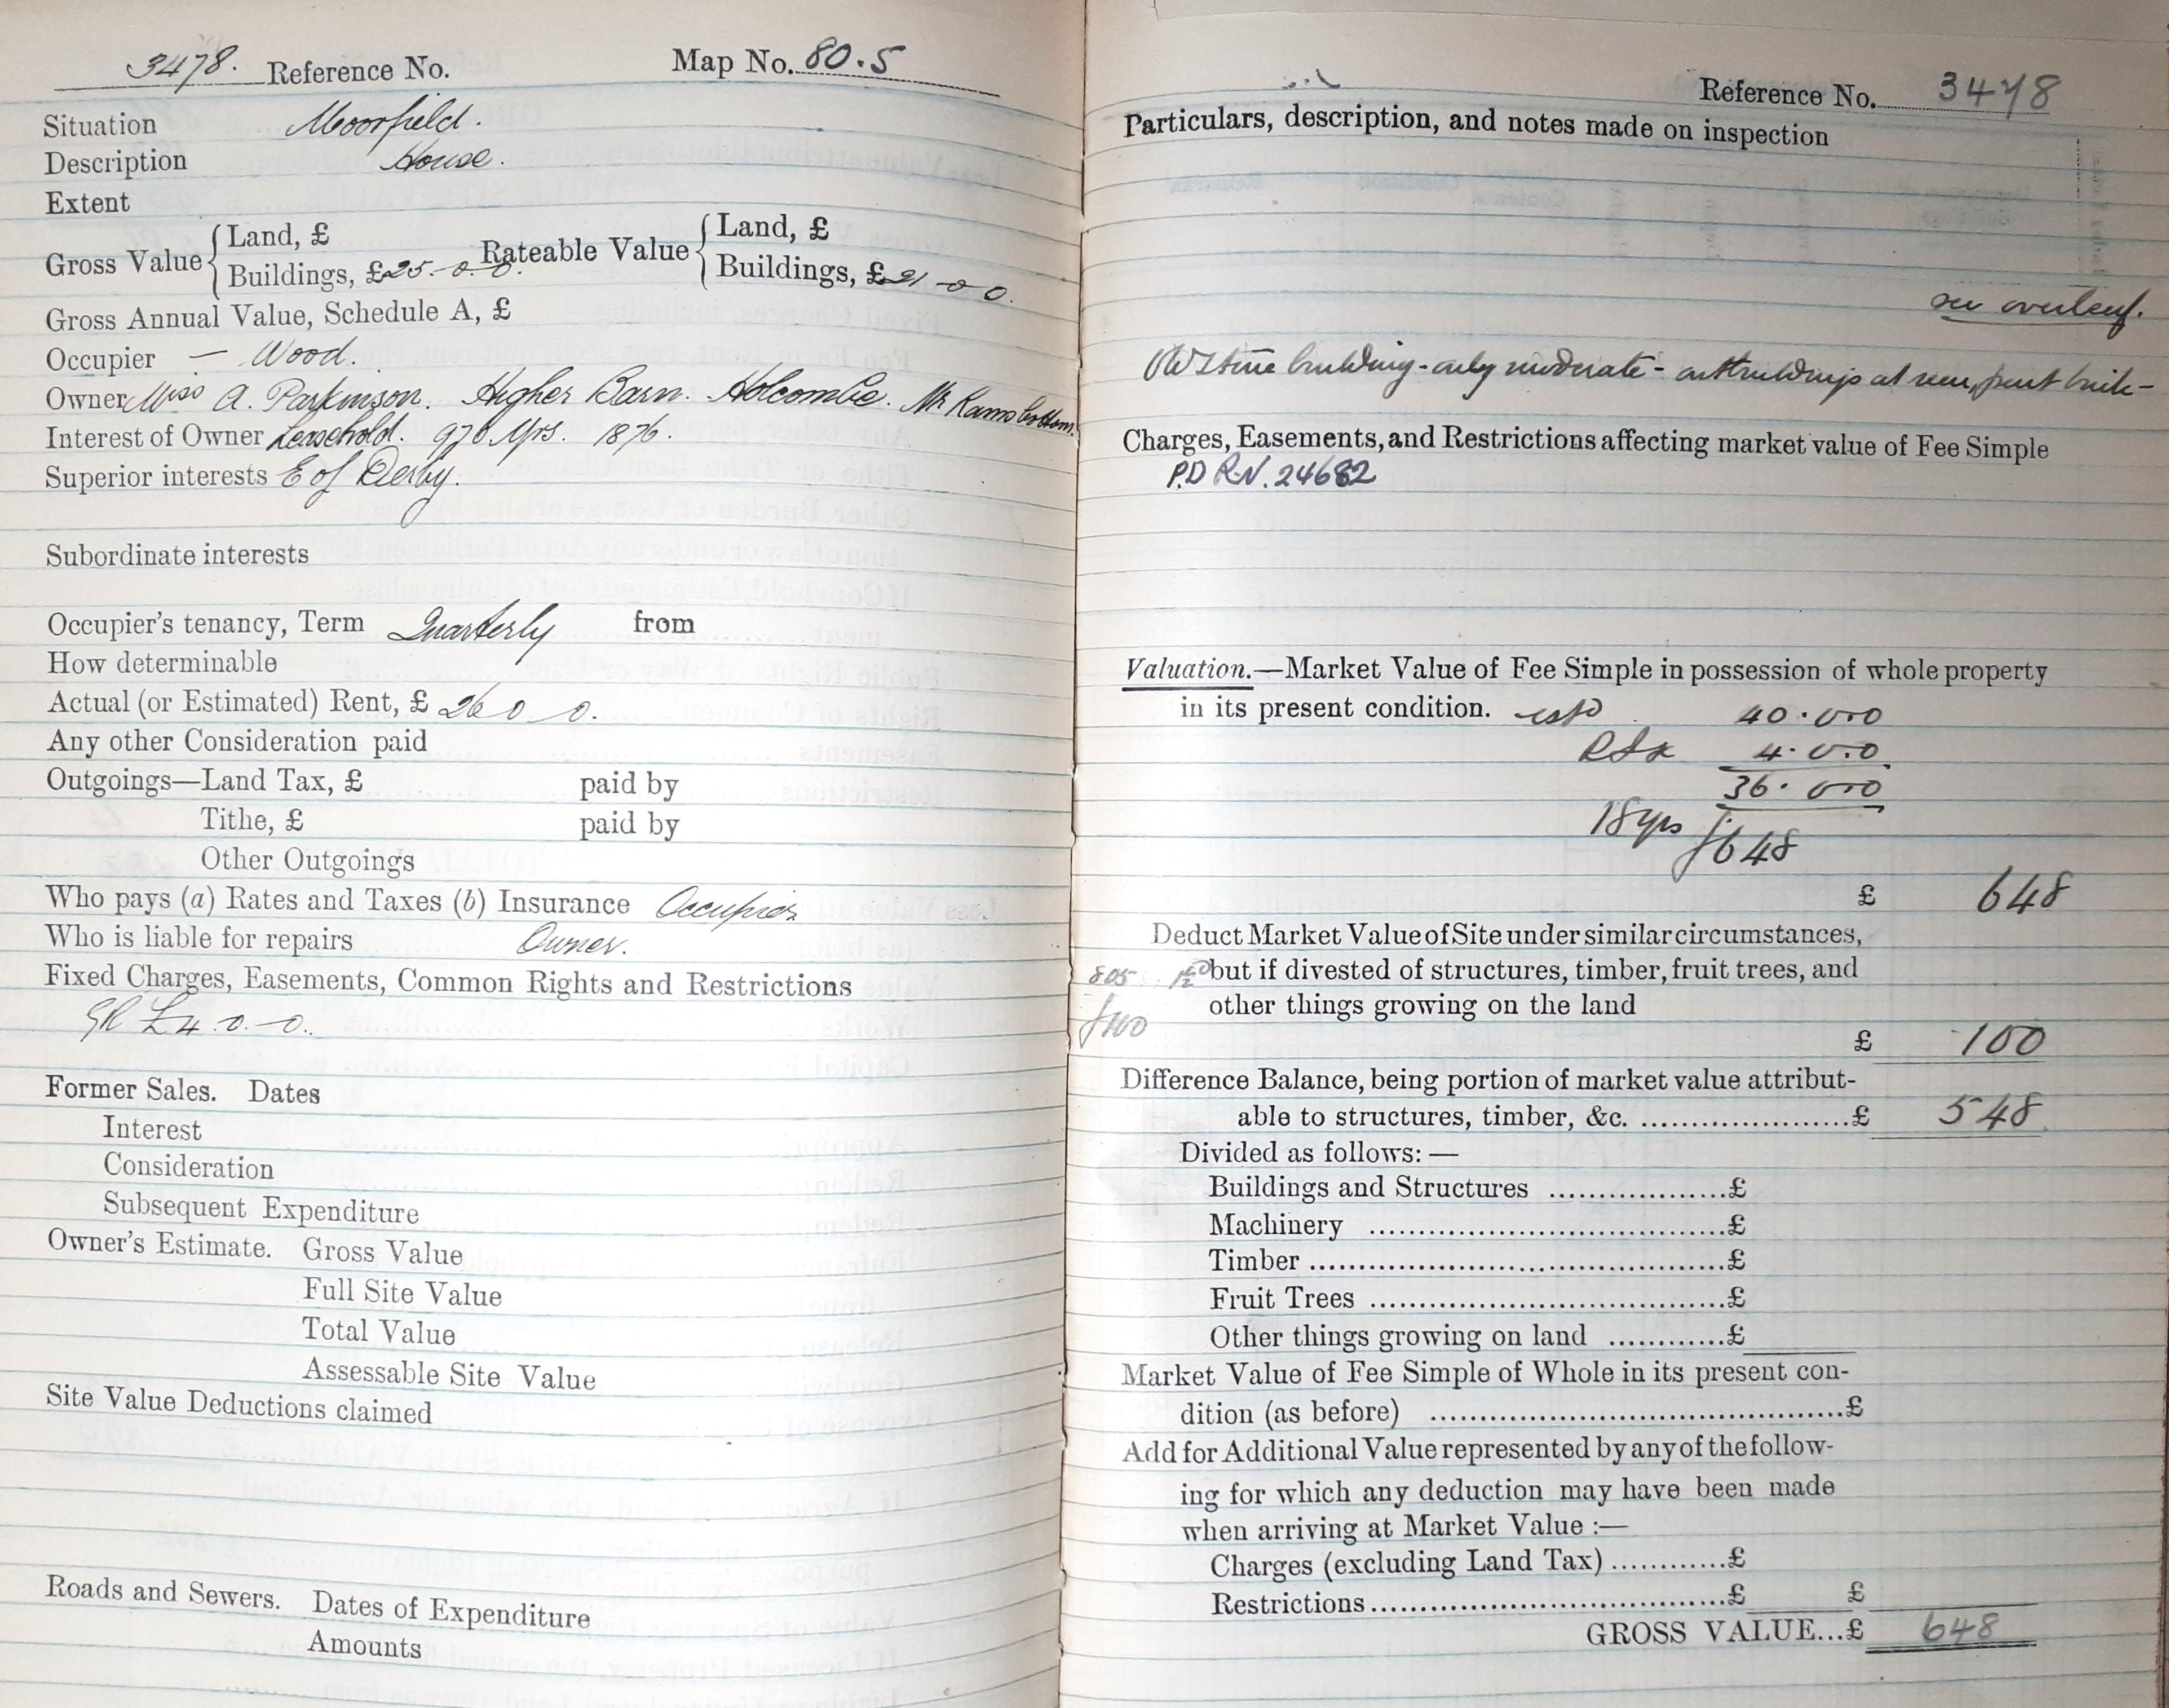 3478. Reference No. Map No. 80.5
Situation Moorfield.
Description House.
Extent
Gross Value { Land, £ Rateable Value { Land, £
Buildings, £25.0.0. Buildings, £21-0 0.
Gross Annual Value, Schedule A, £
Occupier — Wood.
Owner Miss A. Parkinson. Higher Barn. Holcombe. Nr Ramsbottom.
Interest of Owner Leasehold. 970 Yrs. 1876.
Superior interests E of Derby.
Subordinate interests
Occupier's tenancy, Term Quarterly from
How determinable
Actual (or Estimated) Rent, £ 26 0 0.
Any other Consideration paid
Outgoings—Land Tax, £ paid by
Tithe, £ paid by
Other Outgoings
Who pays (a) Rates and Taxes (b) Insurance Occupier
Who is liable for repairs Owner.
Fixed Charges, Easements, Common Rights and Restrictions
GR £4.0.0.
Former Sales. Dates
Interest
Consideration
Subsequent Expenditure
Owner's Estimate. Gross Value
Full Site Value
Total Value
Assessable Site Value
Site Value Deductions claimed
Roads and Sewers. Dates of Expenditure
Amounts
Reference No. 3478
Particulars, description, and notes made on inspection
see overleaf.
Old Stone building - only moderate - outbuildings at rear, part built -
Charges, Easements, and Restrictions affecting market value of Fee Simple
P.D RN. 24682
Valuation.—Market Value of Fee Simple in possession of whole property
in its present condition. esto 40.0.0
4.0.0
36.0.0
18 yrs £648
£ 648
Deduct Market Value of Site under similar circumstances,
805 but if divested of structures, timber, fruit trees, and
£100 other things growing on the land
£ 100
Difference Balance, being portion of market value attribut-
able to structures, timber, &c. ......................£ 548
Divided as follows: —
Buildings and Structures ...................£
Machinery .....................................£
Timber ...........................................£
Fruit Trees .....................................£
Other things growing on land ............£
Market Value of Fee Simple of Whole in its present con-
dition (as before) ...........................................£
Add for Additional Value represented by any of the follow-
ing for which any deduction may have been made
when arriving at Market Value :—
Charges (excluding Land Tax) ............£
Restrictions ......................................£ £
GROSS VALUE...£ 648